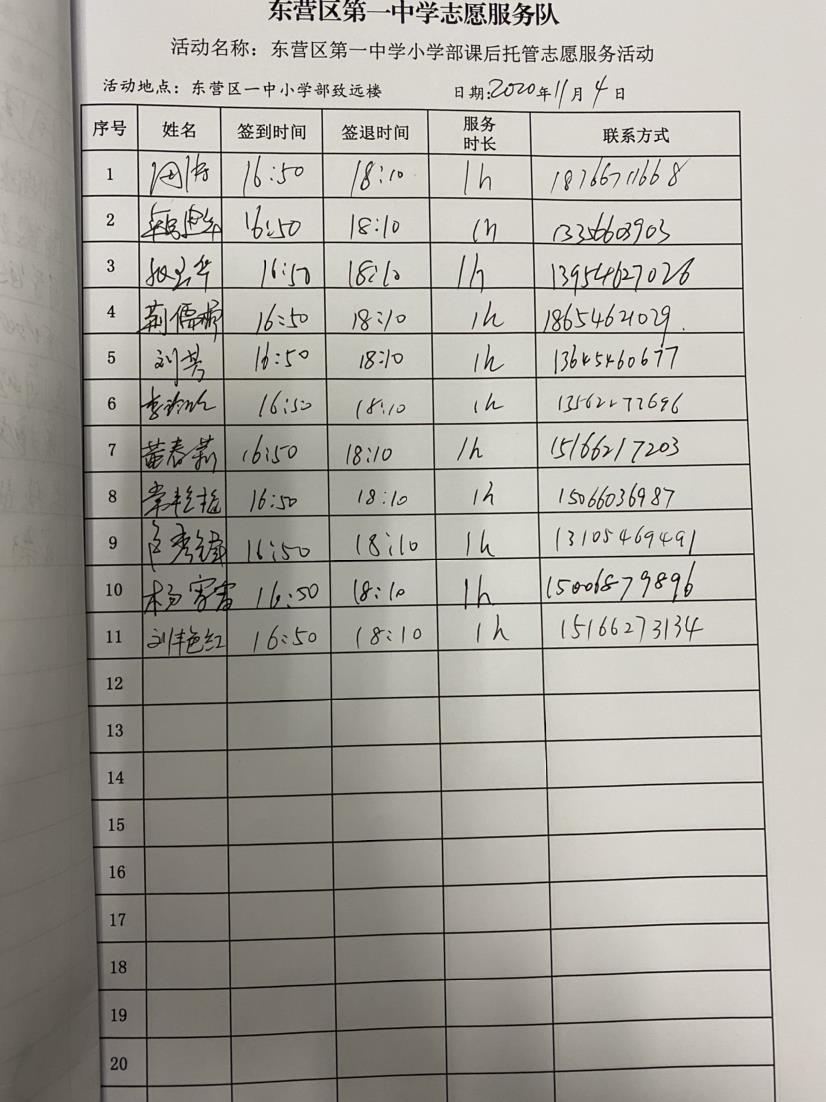 东营区第一中学志愿服务队
活动名称：东营区第一中学小学部课后托管志愿服务活动
活动地点：东营区一中小学部致远楼 日期:2020年11月4日
序号 姓名 签到时间 签退时间 服务时长 联系方式
1 16:50 18:10 1h 18766711668
2 16:50 18:10 1h 13356603903
3 16:50 18:10 1h 13954627026
4 荆儒 16:50 18:10 1h 18654621029.
5 刘芳 16:50 18:10 1h 13645460677
6 16:50 18:10 1h
7 黄春莉 16:50 18:10 1h 15166217203
8 常艳艳 16:50 18:10 1h 15066036987
9 16:50 18:10 1h 13105469491
10 杨 16:50 18:10 1h 15006879896
11 刘艳红 16:50 18:10 1h 15166273134
12
13
14
15
16
17
18
19
20